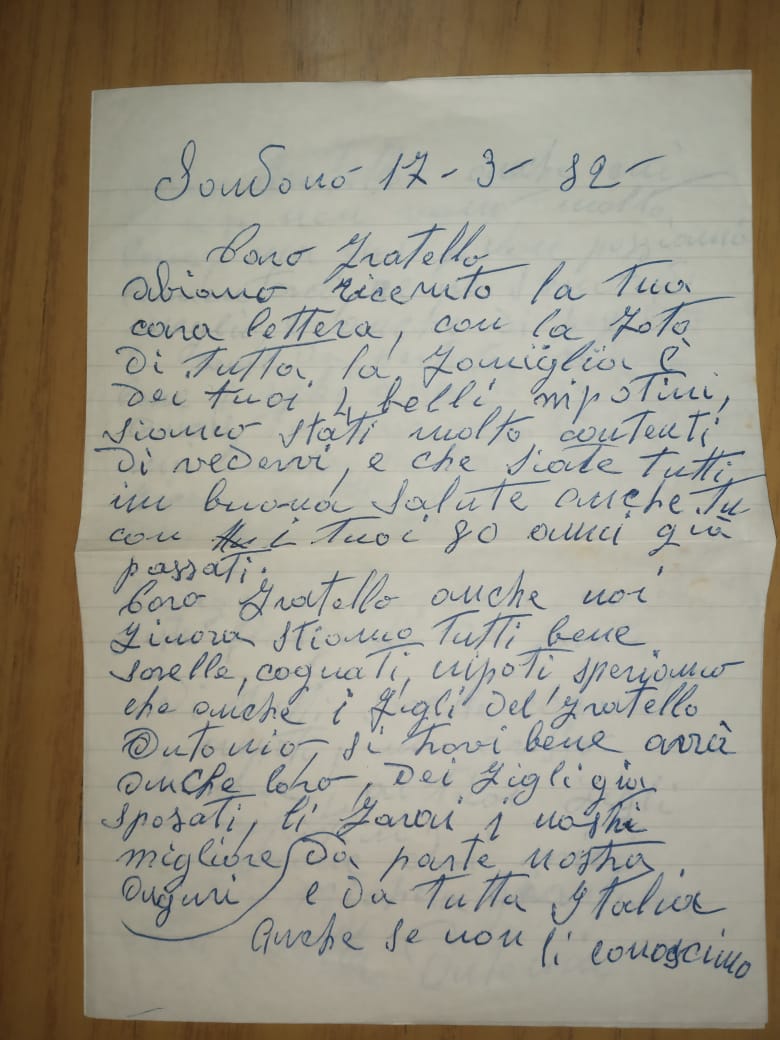 Sondono 17-3-82-
Caro Fratello
abiamo riceuto la tua
cara lettera, con la foto
di tutta la famiglia è
dei tuoi 4 belli nipotini,
siamo stati molto contenti
di vedervi, e che siate tutti
in buona salute anche tu
con i tuoi 80 anni già
passati.
Caro Fratello anche noi
finora stiamo tutti bene
sorelle, cognati, nipoti, speriamo
che anche i figli del fratello
Antonio, si trovi bene avrà
anche loro, dei figli già
sposati, li farai i nostri
migliore da parte nostra
auguri e da tutta Italia
Anche se non li conoscimo